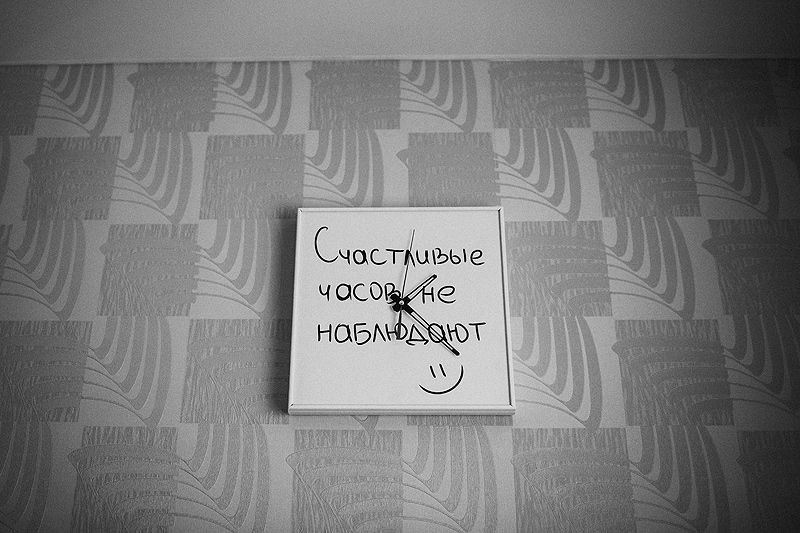 Счастливые
часов не
наблюдают